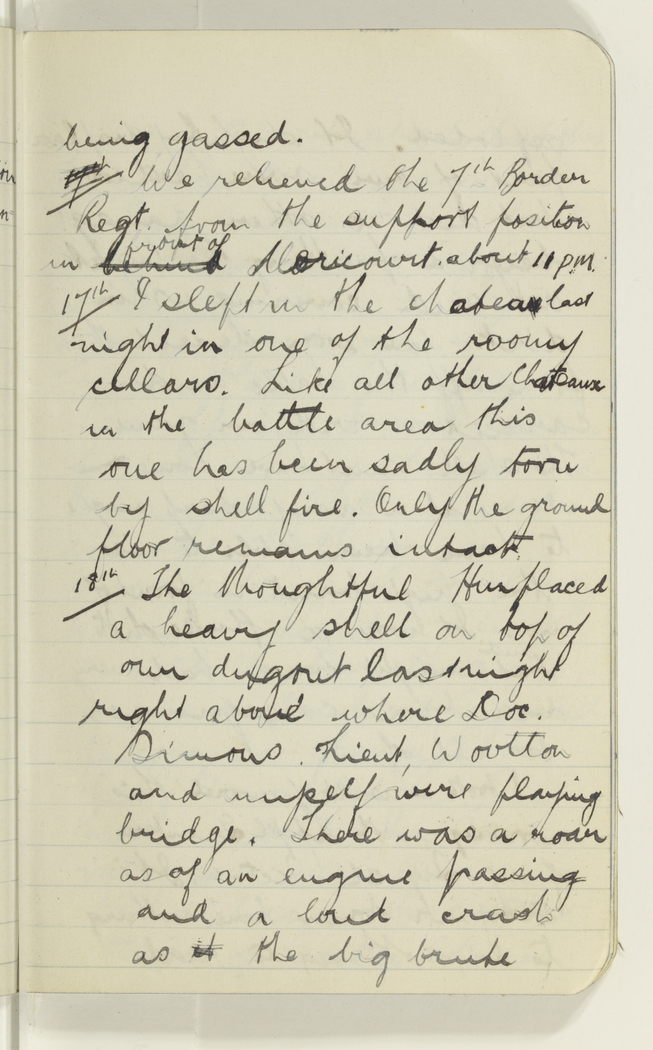 being gassed.
We relieved the 7th Border
Regt. from the support position
in front of Mericourt. about 11 p.m.
17th I slept in the chateau last
night in one of the roomy
cellars. Like all other Chateaux
in the battle area this
one has been sadly torn
by shell fire. Only the ground
floor remains intact
18th The thoughtful Hun placed
a heavy shell on top of
our dugout last night
right above where Doc.
Simons, Lieut, Wootton
and myself were playing
bridge. There was a roar
as of an engine passing
and a loud crash
as the big brute